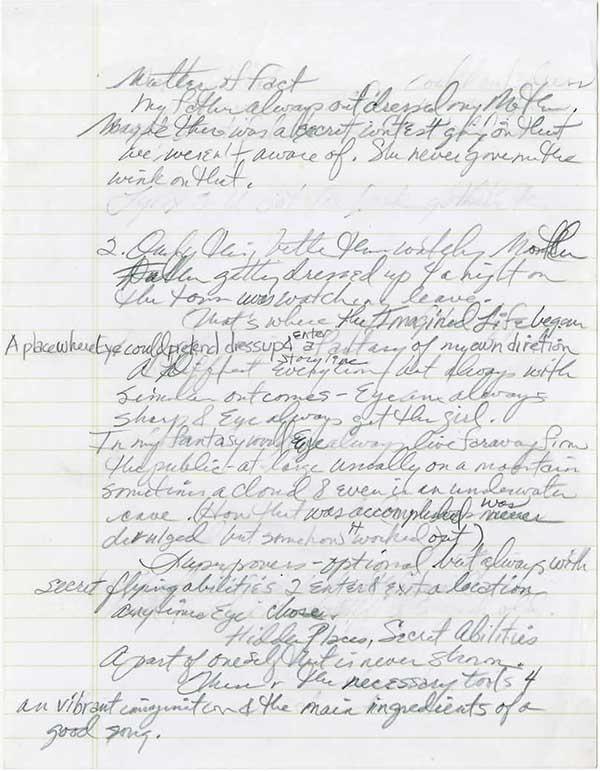 Matter of Fact
my Father always outdressed my Mother.
Maybe there was a secret contest going on that
we weren't aware of. She never gave me the
wink on that.
2. Only thing better than watching Mother
Father getting dressed up 4 a night on
the town was watching leave.
That's where the Imagined Life began
A place where Eye could pretend dressup & enter a fantasy of my own direction
A different storyline Everytime but always with
similar outcomes - Eye am always
sharp & Eye always get the girl.
In my fantasy world Eye always live far away from
the public-at-large usually on a mountain
sometimes a cloud & even in an underwater
cave. (How that was accomplished was never
divulged but somehow it worked out)
Superpowers - optional but always with
secret flying abilities 2 enter & exit a location
anytime Eye chose.
Hidden Places, Secret Abilities
A part of oneself that is never shown.
These r the necessary tools 4
an vibrant imagination & the main ingredients of a
good song.